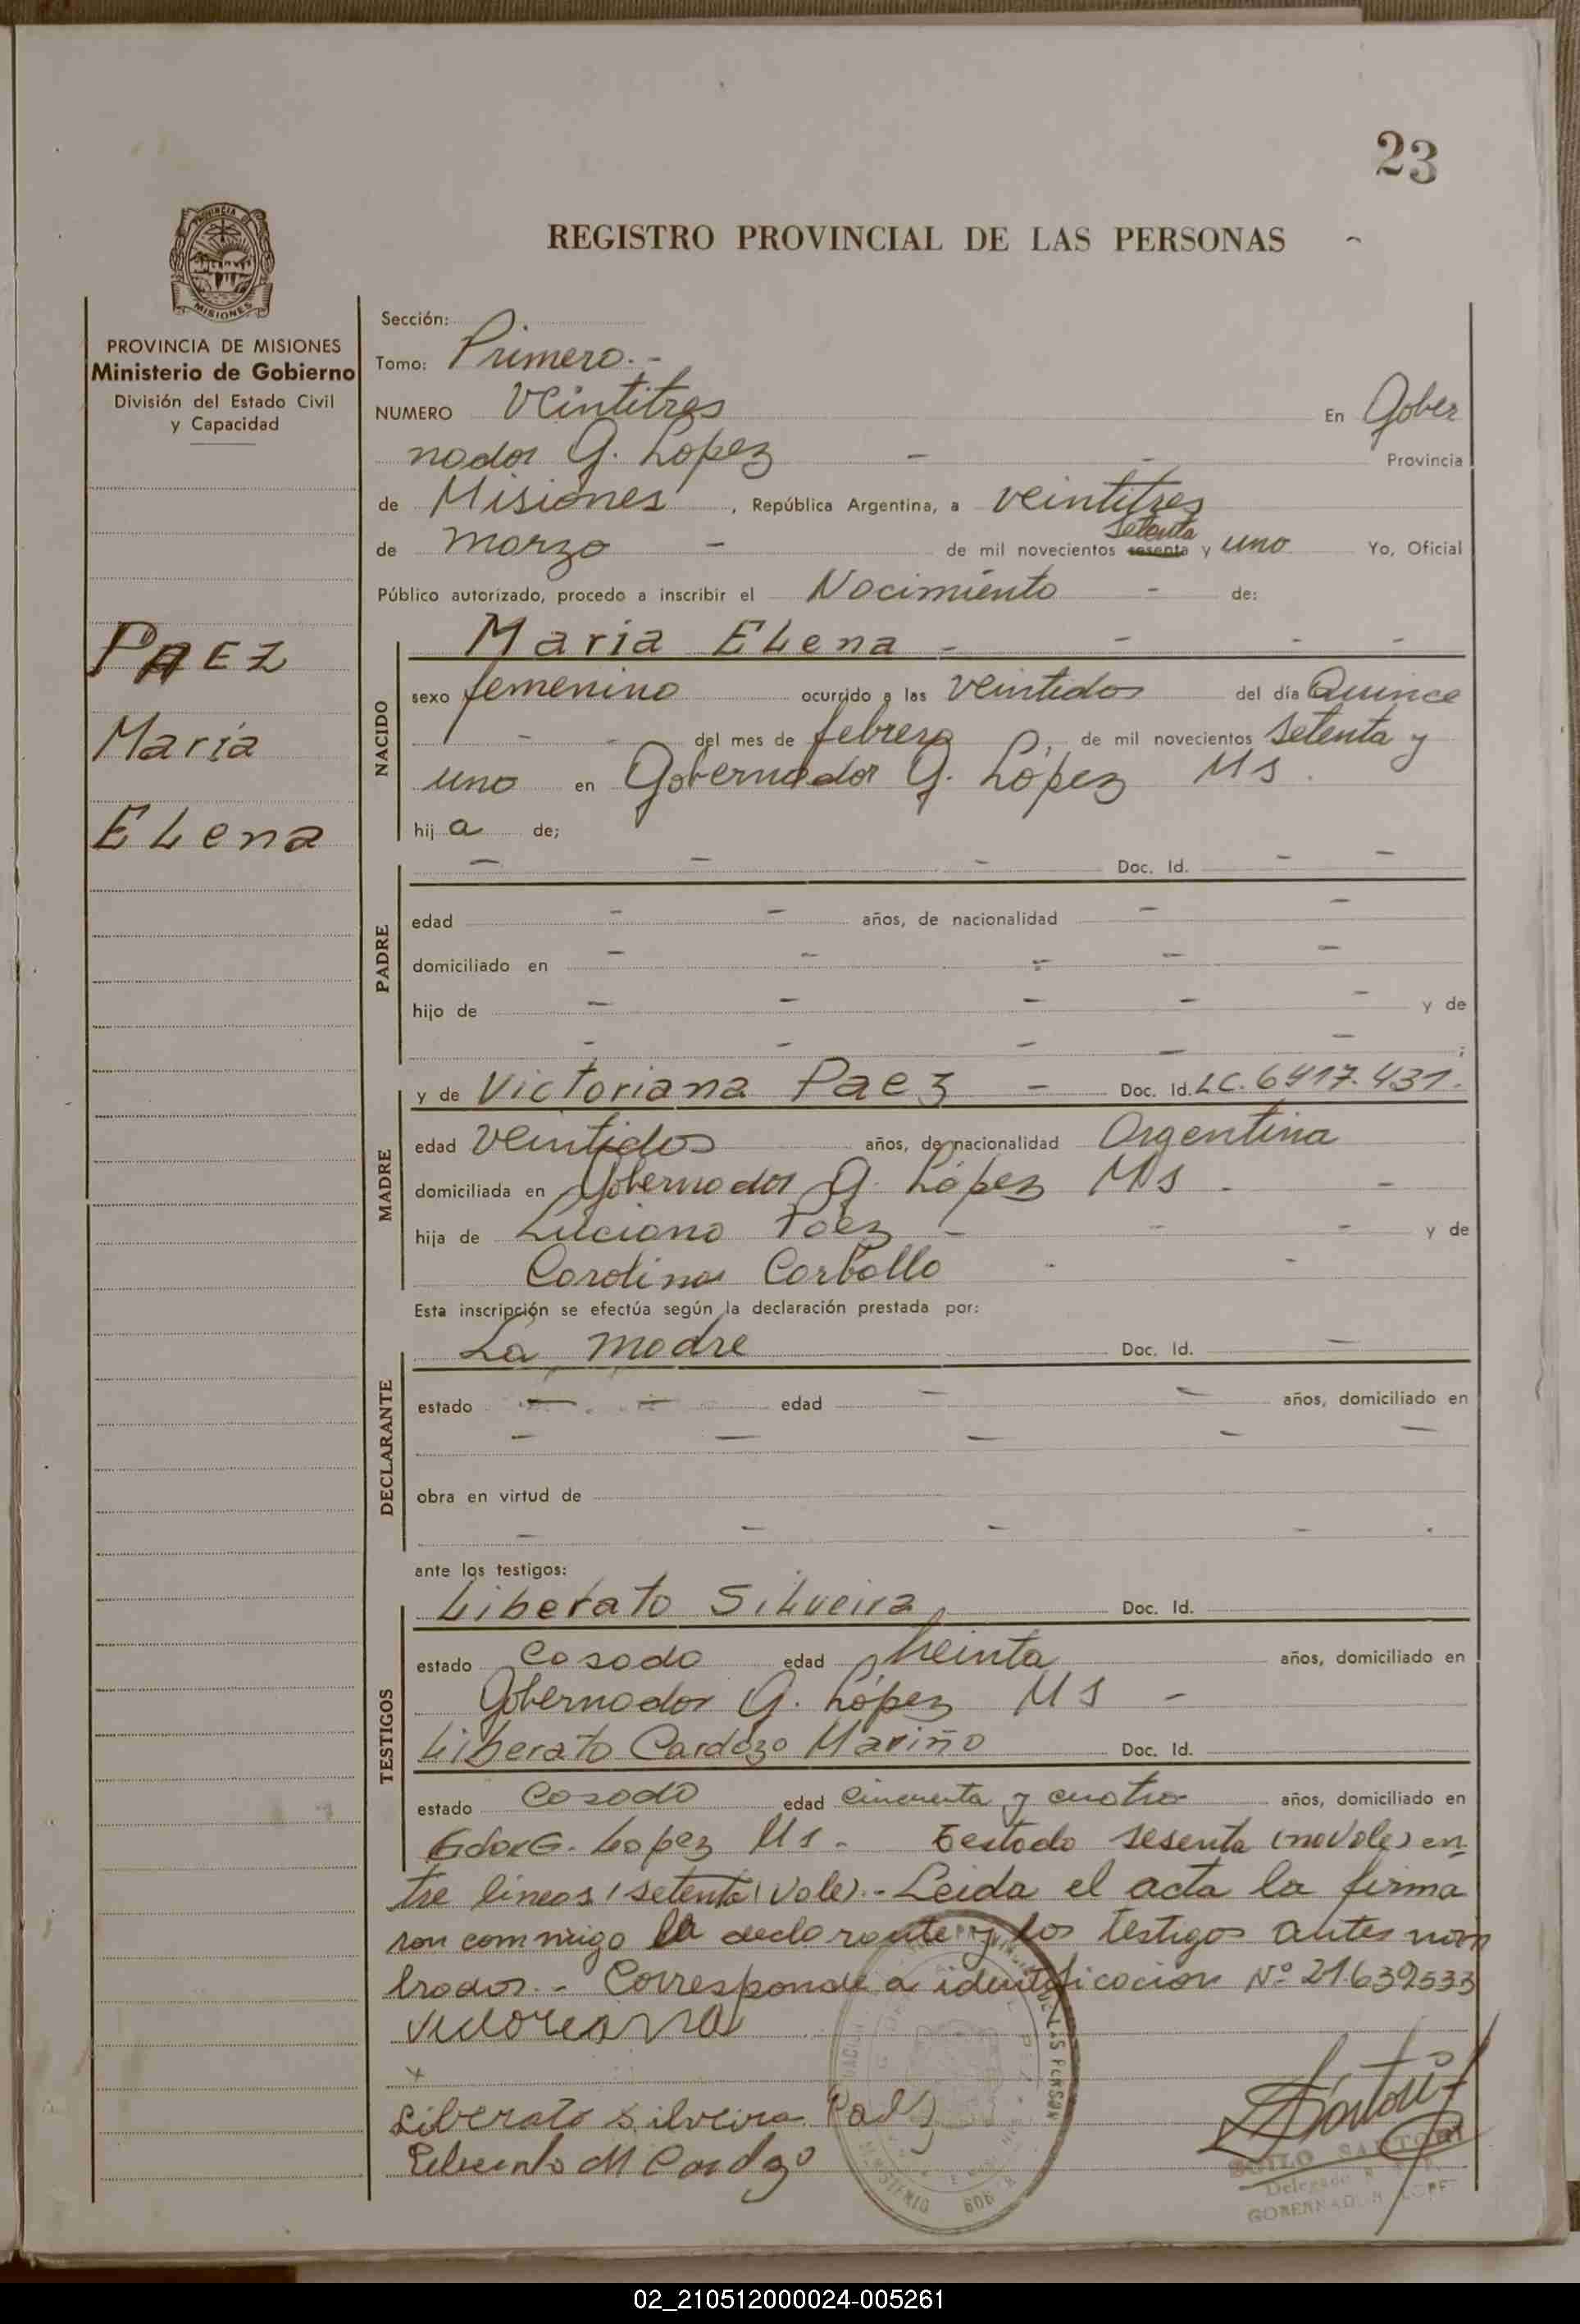 23
REGISTRO PROVINCIAL DE LAS PERSONAS
PROVINCIA DE MISIONES
Ministerio de Gobierno
División del Estado Civil
y Capacidad
PAEZ
María
Elena
Sección:
Tomo: Primero.-
NUMERO Veintitres En Gober
nador G. Lopez - - Provincia
de Misiones, República Argentina, a veintitres
de marzo - de mil novecientos sesenta setenta y uno Yo, Oficial
Público autorizado, procedo a inscribir el Nacimiento - de:
NACIDO
Maria Elena - - - -
sexo femenino ocurrido a las veintidos del día Quince
- - del mes de febrero, de mil novecientos setenta y
uno en Gobernador G. López Ms.
hija de;
PADRE
- - - Doc. Id. - -
edad - - años, de nacionalidad - -
domiciliado en - - - - -
hijo de - - - - - y de
- - - - - ;
MADRE
y de Victoriana Paez - Doc. Id. LC. 6417.431.
edad veintidos años, de nacionalidad Argentina
domiciliada en Gobernador G. López Ms - -
hija de Luciano Paez - - - y de
Carolina Carballo - -
Esta inscripción se efectúa según la declaración prestada por:
DECLARANTE
La madre Doc. Id. -
estado - - edad - - años, domiciliado en
- - - - -
obra en virtud de
- - - - .
ante los testigos:
TESTIGOS
Liberato Silveira Doc. Id.
estado Casado edad treinta años, domiciliado en
Gobernador G. López Ms -
Liberato Cardozo Mariño Doc. Id.
estado Casado edad cincuenta y cuatro años, domiciliado en
Gdor G. Lopez Ms. - Testado sesenta (no vale) en
tre lineas (setenta) vale).- Leida el acta la firma
ron conmigo la declarante y los testigos antes nom
brados.- Corresponde a identificacion Nº 21639533
Victoriana
x
Liberato Silveira Paez
Liberato M Cardozo
SANTORI
Delegado
GOBERNADOR LOPEZ
02_210512000024-005261